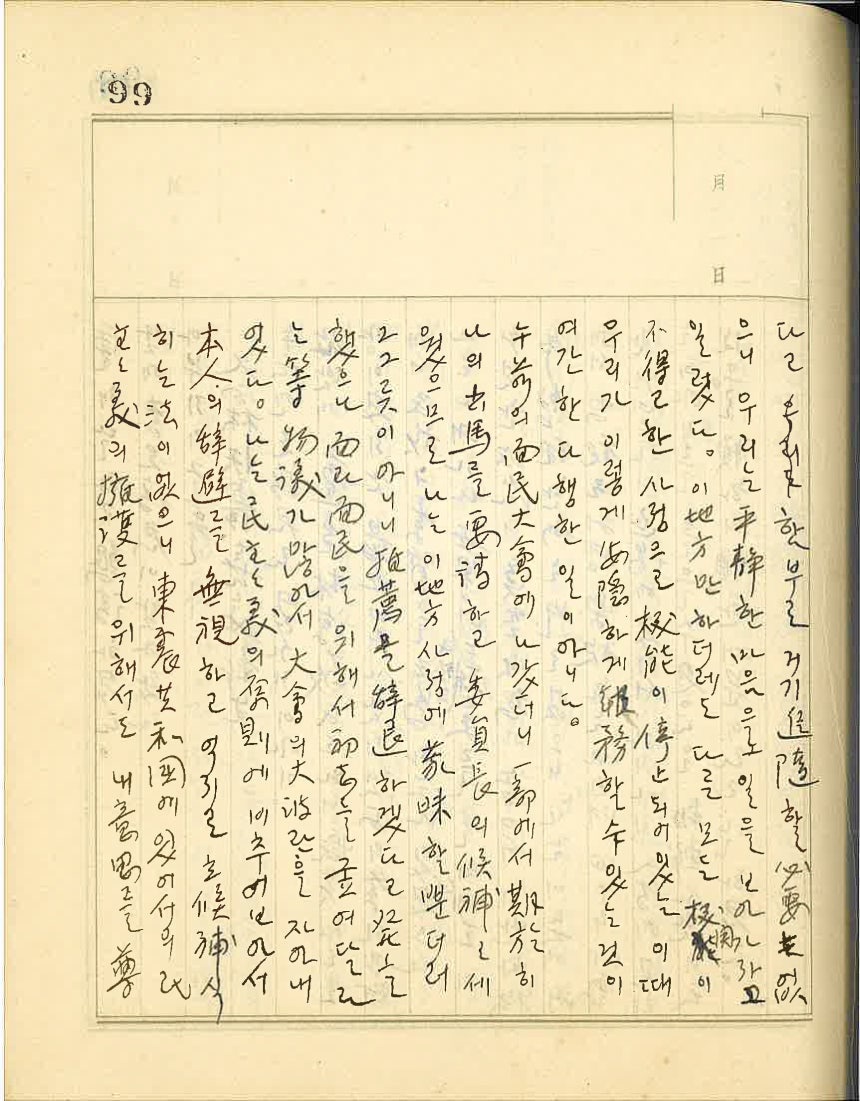 99
月
日
다고 우리가 함부로 거기 追隨할 必要는 없
으니 우리는 平静한 마음으로 일을 보아가라고
일렀다。이地方만 하더래도 다른 모든 機關이
不得已한 사정으로 機能이 停止되어 있는 이때
우리가 이렇게 安隱하게 服務할 수 있는 것이
여간한 다행한 일이 아니다。
午前의 面民大會에 나갔더니 一部에서 期於히
나의 出馬를 要請하고 委員長의 候補로 세
웠으므로 나는 이地方사정에 蒙昧할뿐더러
그 그릇이 아니니 推薦을 辭退하겠다고 發言
했으나 面과 面民을 위해서 初志를 굽여달라
는 等 物議가 많아서 大會의 大波란을 자아내
었다。나는 民主主義의 原則에 비추어보아서
本人의 辭避를 無視하고 억지로 立候補식
히는 法이 없으니 東震共和國에 있어서의 民
主主義의 擁護를 위해서도 내 意思를 尊